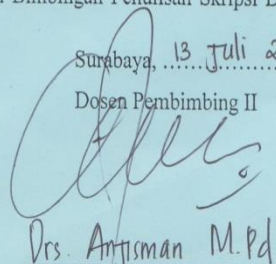 Bimbingan Penulisan Skripsi
Surabaya, 13 Juli 2
Dosen Pembimbing II
Drs. Antisman M.Pd